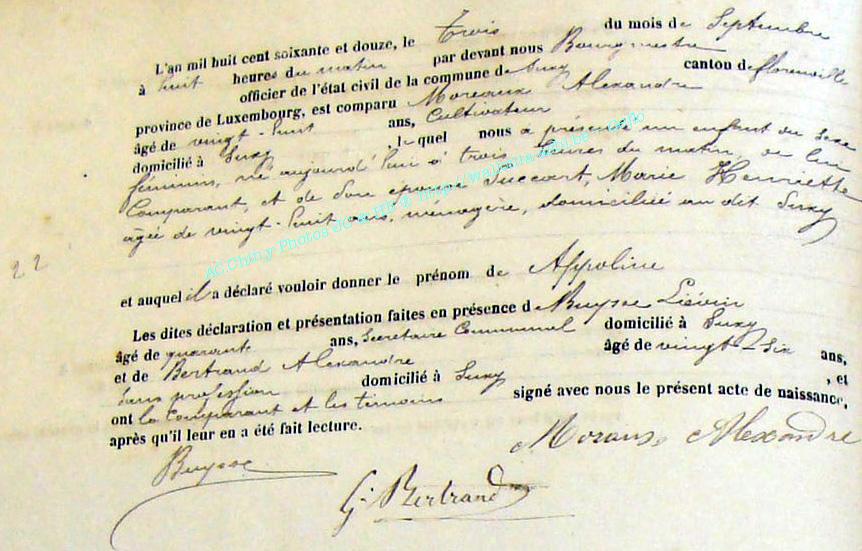 L'an mil huit cent soixante et douze, le trois du mois de Septembre
à huit heures du matin par devant nous Bourgmestre
officier de l'état civil de la commune de Suxy canton de florenville
province de Luxembourg, est comparu Moreaux Alexandre
âgé de vingt-huit ans, Cultivateur
domicilié à Suxy, lequel nous a présenté un enfant du sexe
féminin, né aujourd'hui à trois heures du matin, de lui
Comparant, et de son épouse Succart, Marie Henriette
âgée de vingt-huit ans, ménagère, domiciliée au dit Suxy
22
et auquel il a déclaré vouloir donner le prénom de Appoline
Les dites déclaration et présentation faites en présence de Buysse Liévin
âgé de quarante ans, Secrétaire Communal domicilié à Suxy
et de Bertrand Alexandre âgé de vingt-six ans,
sans profession domicilié à Suxy, et
ont le Comparant et les témoins signé avec nous le présent acte de naissance,
après qu'il leur en a été fait lecture.
Moraux Alexandre
Buysse
G. Bertrand
AC Chiny Photos